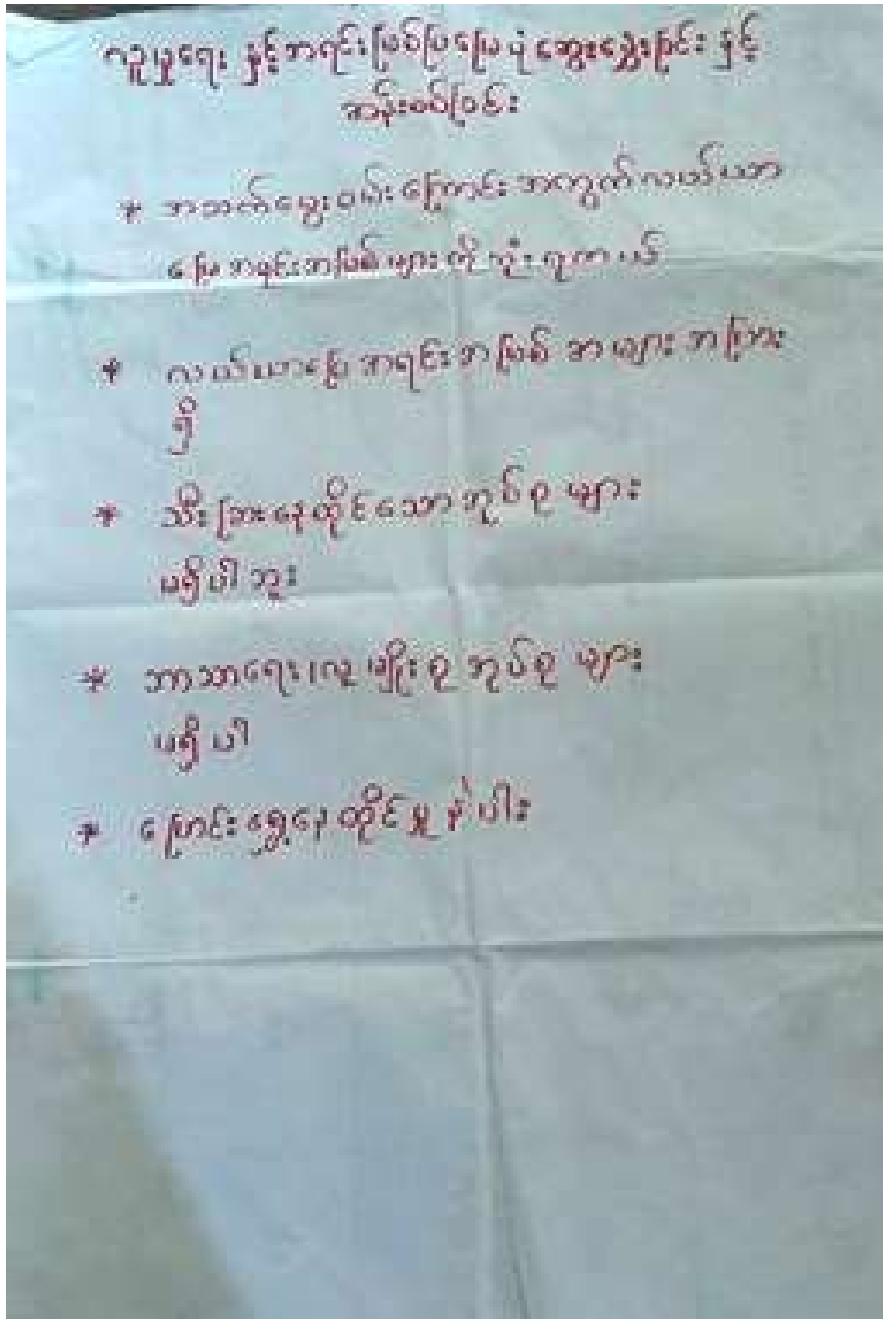 လူမှုရေး နှင့်အရင်းမြစ်ပြမြေပုံဆွေးနွေးခြင်း နှင့်
ဆန်းစစ်ခြင်း
* အသက်မွေးဝမ်းကြောင်းအတွက်လယ်ယာ
မြေအရင်းအမြစ်များကိုသုံးရတယ်
* လယ်ယာမြေအရင်းအမြစ် အများအပြား
ရှိ
* သီးခြားနေထိုင်သောအုပ်စုများ
မရှိပါဘူး
* ဘာသာရေး၊လူမျိုးစုအုပ်စုများ
မရှိပါ
* ပြောင်းရွှေ့နေထိုင်မှုနဲပါး